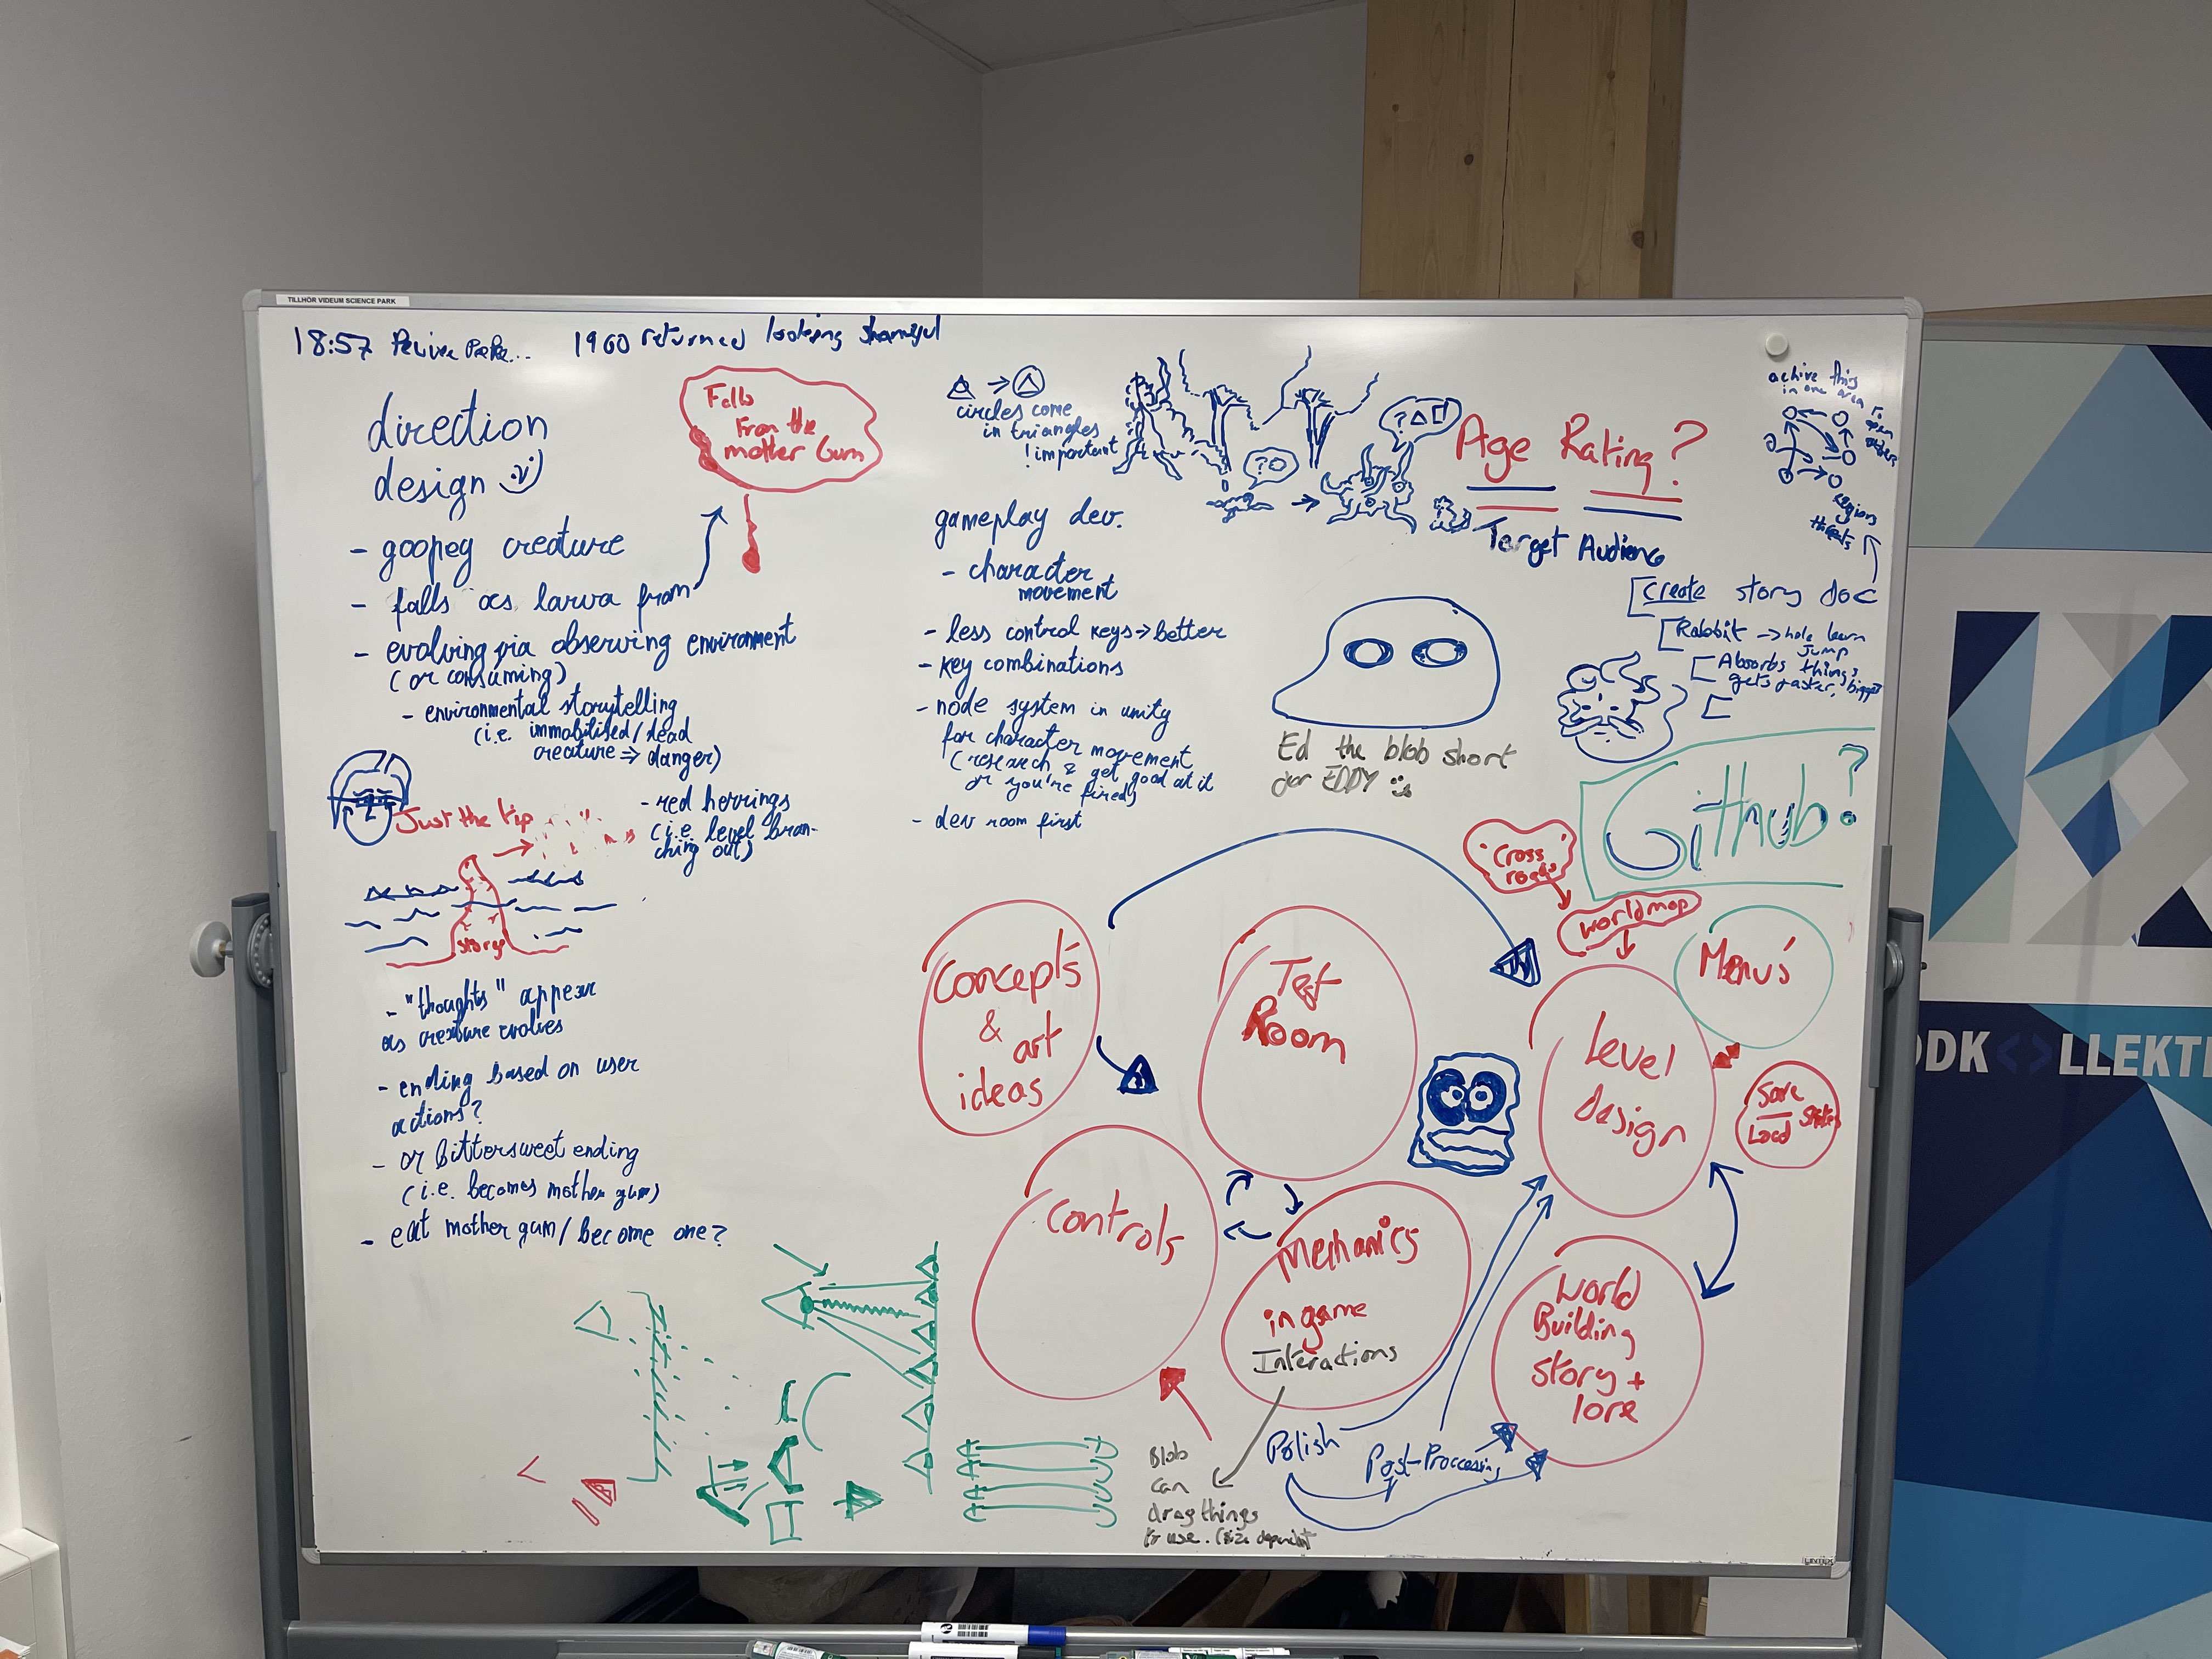 TILLHÖR VIDEUM SCIENCE PARK
18:57
1900 returned looking
direction
design :)
- goopey creature
- falls as larva from
- evolving via observing environment
(or consuming)
- environmental storytelling
(i.e. immobilised/dead
creature => danger)
- red herrings
(i.e. level bran-
ching out)
Falls
From the
mother Gum
Just the tip
story
- "thoughts" appear
as creature evolves
- ending based on user
actions?
- or bittersweet ending
(i.e. becomes mother gum)
- eat mother gum/become one?
circles come
in triangles
! important
? O
? △ □
gameplay dev.
- character
movement
- less control keys => better
- key combinations
- node system in unity
for character movement
(research & get good at it
or you're fired)
- dev room first
Age Rating?
Target Audience
achive this
in one area to
open
others
regions
threats
Create story doc
Rabbit -> hole learn
Jump
Absorbs things
gets faster, bigger
Ed the blob short
for EDDY
Github?
Cross
roads
worldmap
Menu's
Concepts
& art
ideas
Test
Room
Level
design
Save
Load States
Controls
Mechanics
in game
Interactions
World
Building
Story +
lore
Polish
Post-Proccessing
Blob
can
drag things
to use. (size dependent
ODK<>LLEKTI